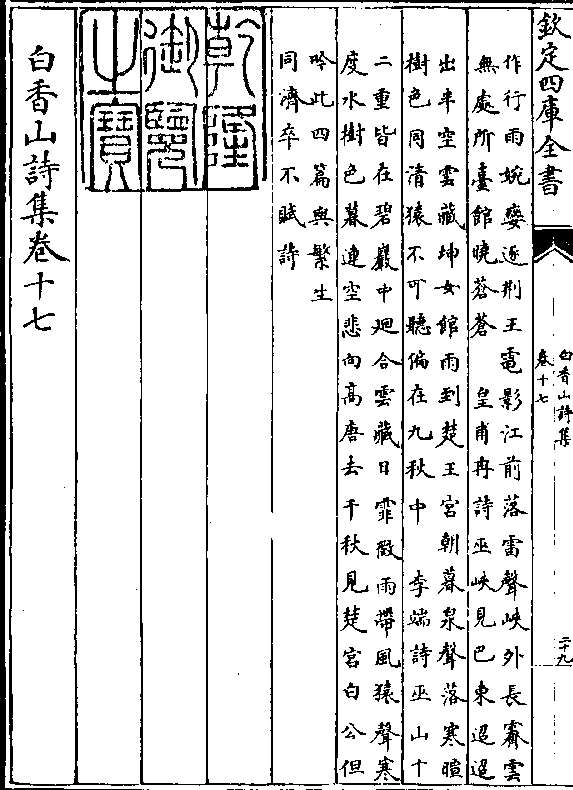 欽定四庫全書
白香山詩集
卷十七
二十九
作行雨蜿孌逐荆王電影江前落雷聲峽外長霽雲
無處所臺館曉蒼蒼　皇甫冉詩巫峽見巴東迢迢
出半空雲藏坤女館雨到楚王宮朝暮泉聲落寒暄
樹色同清猿不可聽偏在九秋中　李端詩巫山十
二重皆在碧巖中廻合雲藏日霏微雨帶風猿聲寒
度水樹色暮連空悲向髙唐去千秋見楚宮白公但
吟此四篇與繁生
同濟卒不賦詩
乾隆
御覽
之寶
白香山詩集卷十七